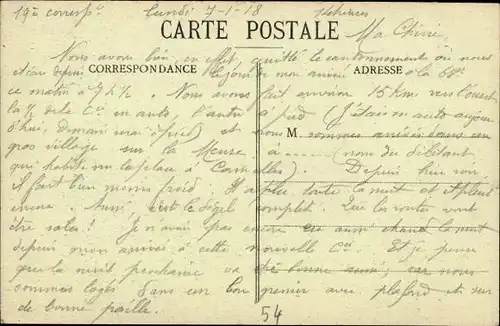 19e corresp. Lundi 7-1-18
CARTE POSTALE
Ma Chérie,
Nous avons bien, en effet, quitté le cantonnement où nous
CORRESPONDANCE ADRESSE
étions depuis le jour de mon arrivée à la 6e
ce matin à 7h½. Nous avons fait environ 15 Km vers l'ouest
la ½ de la Cie en auto, l'autre à pied (J'étais en auto aujour
d'hui, demain irai à pied) et nous M sommes arrivés dans un
gros village sur la Meuse à ---- (nom du
qui . Depuis hier soir,
il fait bien moins froid. Il a plu toute la nuit et il pleut
encore. Aussi, c'est le dégel complet. Que les routes vont
être sales! Je n'avais pas encore eu aussi chaud la nuit
depuis mon arrivée à cette nouvelle Cie. Et je pense
que la nuit prochaine va être bonne aussi; car nous
sommes logés dans un bon grenier avec plafond et sur
de bonne paille.
54